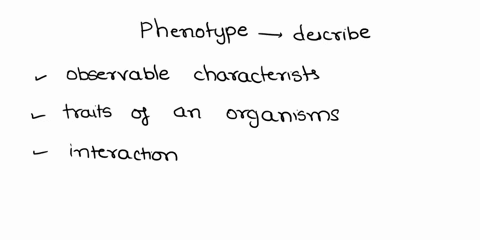 Phenotype → describe
✓ observable characterists
✓ traits of an organisms
✓ interaction